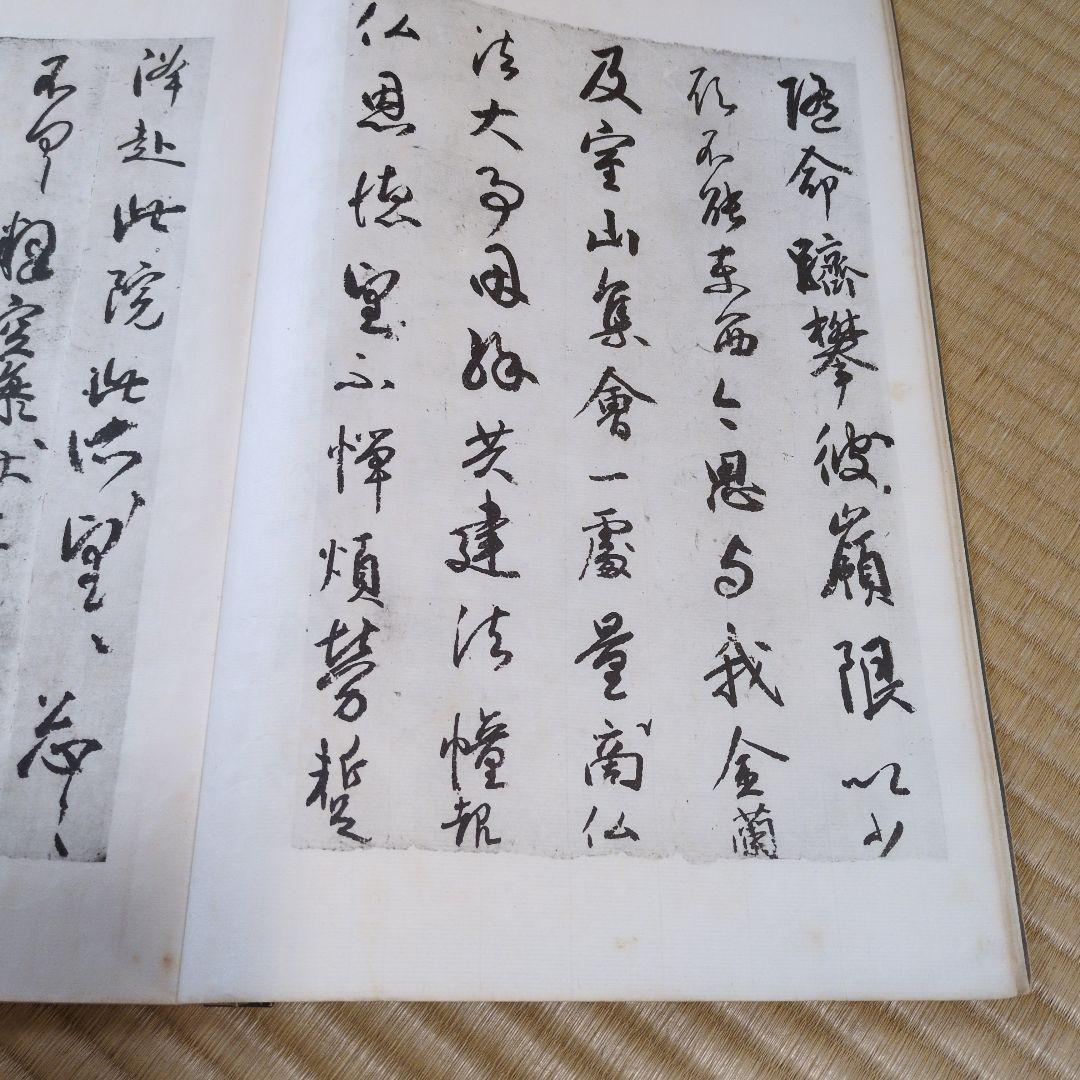 随命躋攀彼嶺限以少
願不能東西今思与我金蘭
及室山集會一處量商仏
法大事因縁共建法幢報
仏恩徳望不憚煩勞蹔
降赴此院此所望々忩々
不具釋空海状